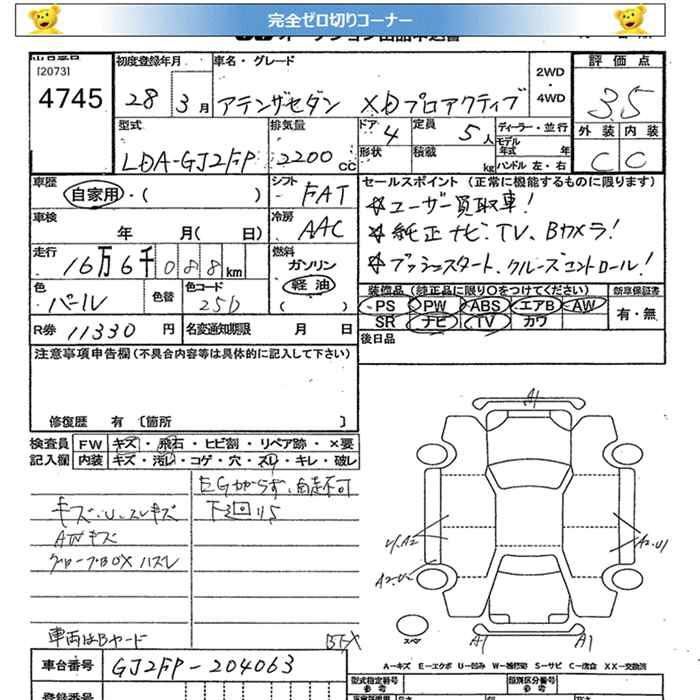 完全ゼロ切りコーナー
[2073]
4745
初度登録年月
28 3月
車名・グレード
アテンザセダン XDプロアクティブ
2WD
・
4WD
評価点
3.5
外装 内装
C C
型式
LDA-GJ2FP
排気量
2200cc
ドア 4
形状
定員 5人
積載 kg
ディーラー・並行
モデル年式 年
ハンドル 左・右
車歴
自家用・( )
シフト
FAT
車検
年 月( 日)
冷房
AAC
走行
16万6千088km
燃料
ガソリン
軽油
( )
色
パール
色替
色コード
25D
R券 11330円
名変通知期限 月 日
セールスポイント (正常に機能するものに限ります)
☆ユーザー買取車!
☆純正ナビ、TV、Bカメラ!
☆プッシュスタート、クルーズコントロール!
装備品 (純正品に限り○をつけてください)
新車保証書
PS PW ABS エアB AW
SR ナビ TV カワ
有・無
後日品
注意事項申告欄(不具合内容等は具体的に記入して下さい)
修復歴 有 〔箇所 〕
検査員記入欄
FW キズ・飛石・ヒビ割・リペア跡・×要
内装 キズ・汚レ・コゲ・穴・スリ・キレ・破レ
EGかからず、自走不可
キズ・U、スレキズ
下廻りS
AWキズ
グローブBOXハズレ
車両はBヤード
A1
A2.U1
A1 A1
A-キズ E-エクボ U-凹み W-補修跡 S-サビ C-腐食 XX-交換済
車台番号
GJ2FP-204063
型式指定番号
参考
類別区分番号
参考
登録番号